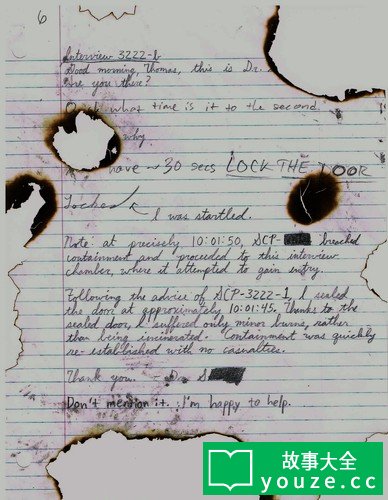 6
Interview 3222-1
Good morning, Thomas, this is Dr.
Are you there?
what time is it to the second.
why
have ~30 secs LOCK THE DOOR
Locked
I was startled.
Note: at precisely 10:01:50, SCP- breached
containment and proceeded to this interview
chamber, where it attempted to gain entry.
Following the advice of SCP-3222-1, I sealed
the door at approximately 10:01:45. Thanks to the
sealed door, I suffered only minor burns, rather
than being incinerated. Containment was quickly
re-established with no casualties.
Thank you. - Dr. S
Don't mention it. I'm happy to help.
故事大全
youze.cc